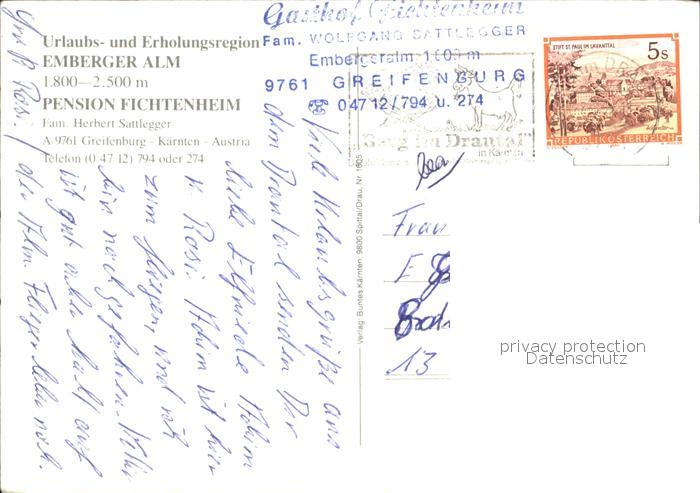 Urlaubs- und Erholungsregion
EMBERGER ALM
1.800—2.500 m
PENSION FICHTENHEIM
Fam. Herbert Sattlegger
A-9761 Greifenburg - Kärnten - Austria
Telefon (0 47 12) 794 oder 274
Gasthof Fichtenheim
Fam. WOLFGANG SATTLEGGER
Embergeralm 1600 m
9761 GREIFENBURG
☎ 04712/794 u. 274
Berg im Drautal
in Kärnten
STIFT ST. PAUL IM LAVANTTAL
5 S
REPUBLIK ÖSTERREICH
Verlag: Buntes Kärnten, 9800 Spittal/Drau, Nr. 1605
Viele Urlaubsgrüße aus
dem Drautal senden Dir
liebe Elfriede Achim
u. Rosi. Achim ist hier
zum fliegen, und ich
bin noch gefahren. Wetter
ist gut aber kalt auf
der Alm. Flieger leben noch.
Gruß Rosi
Frau
E
13
privacy protection
Datenschutz